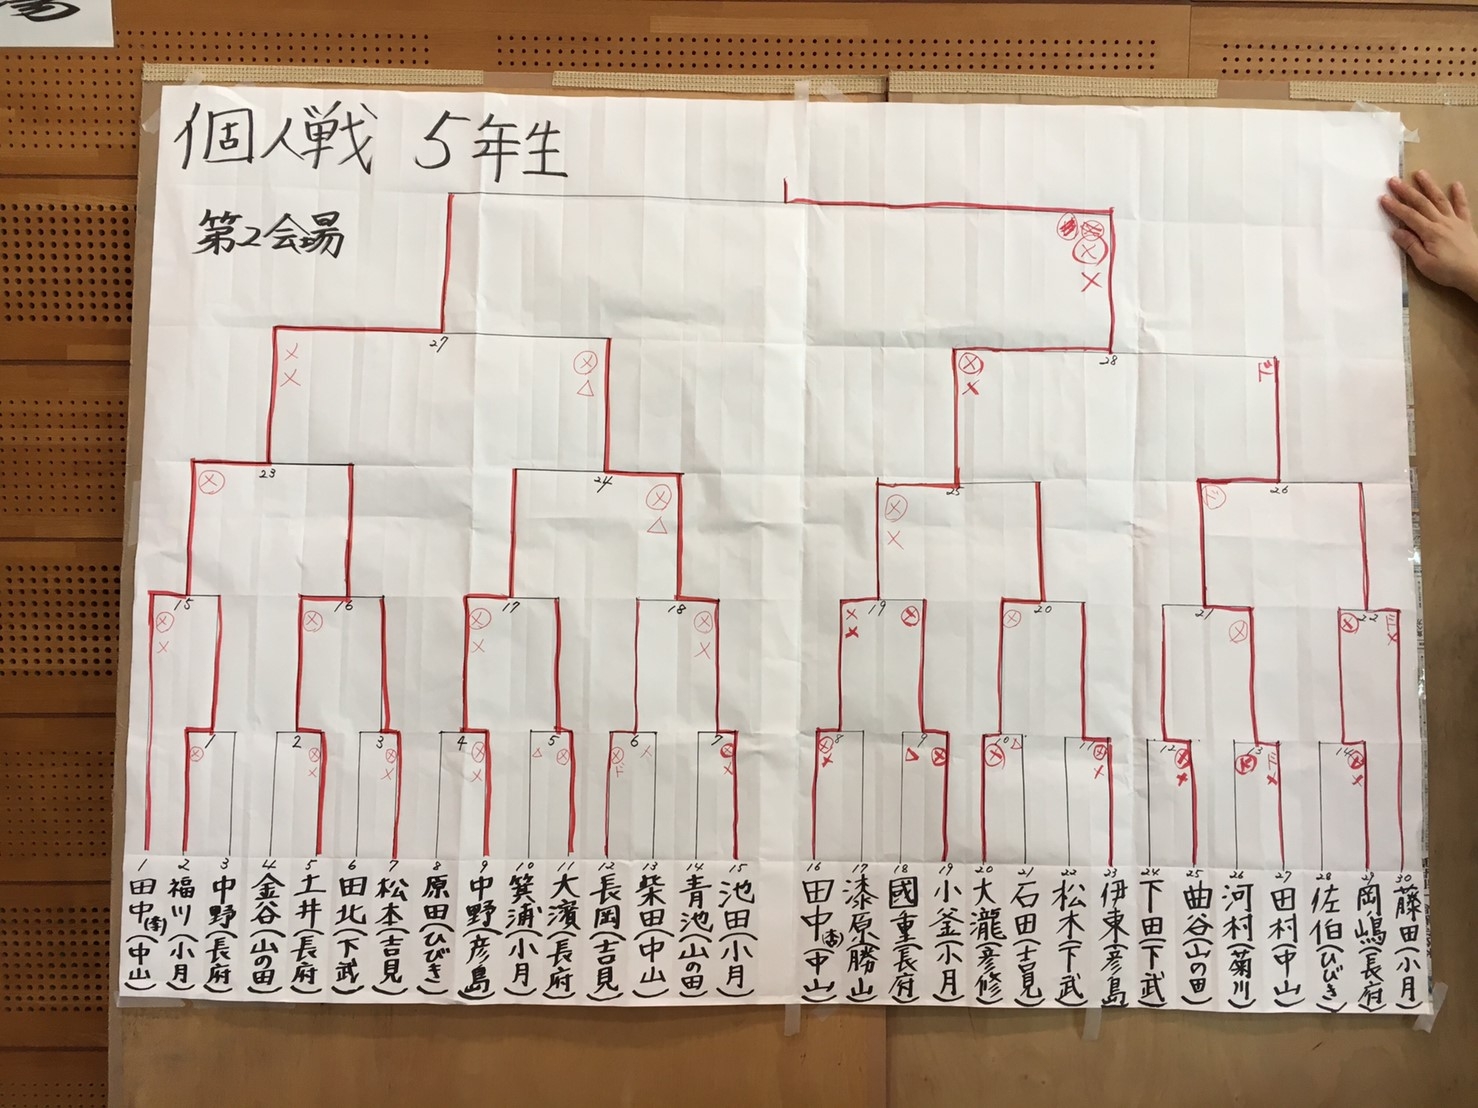 個人戦 5年生
第2会場
27
28
23
24
25
26
15
16
17
18
19
20
21
22
1
2
3
4
5
6
7
8
9
10
11
12
13
14
1 田中(李)(中山)
2 福川(小月)
3 中野(長府)
4 金谷(山の田)
5 土井(長府)
6 田北(下武)
7 松本(吉見)
8 原田(ひびき)
9 中野(彦島)
10 箕浦(小月)
11 大濱(長府)
12 長岡(吉見)
13 柴田(中山)
14 青池(山の田)
15 池田(小月)
16 田中(中山)
17 漆原(勝山)
18 國重(長府)
19 小釜(小月)
20 大瀧(彦修)
21 石田(吉見)
22 松木(下武)
23 伊東(彦島)
24 下田(下武)
25 曲谷(山の田)
26 河村(菊川)
27 田村(中山)
28 佐伯(ひびき)
29 岡嶋(長府)
30 藤田(小月)